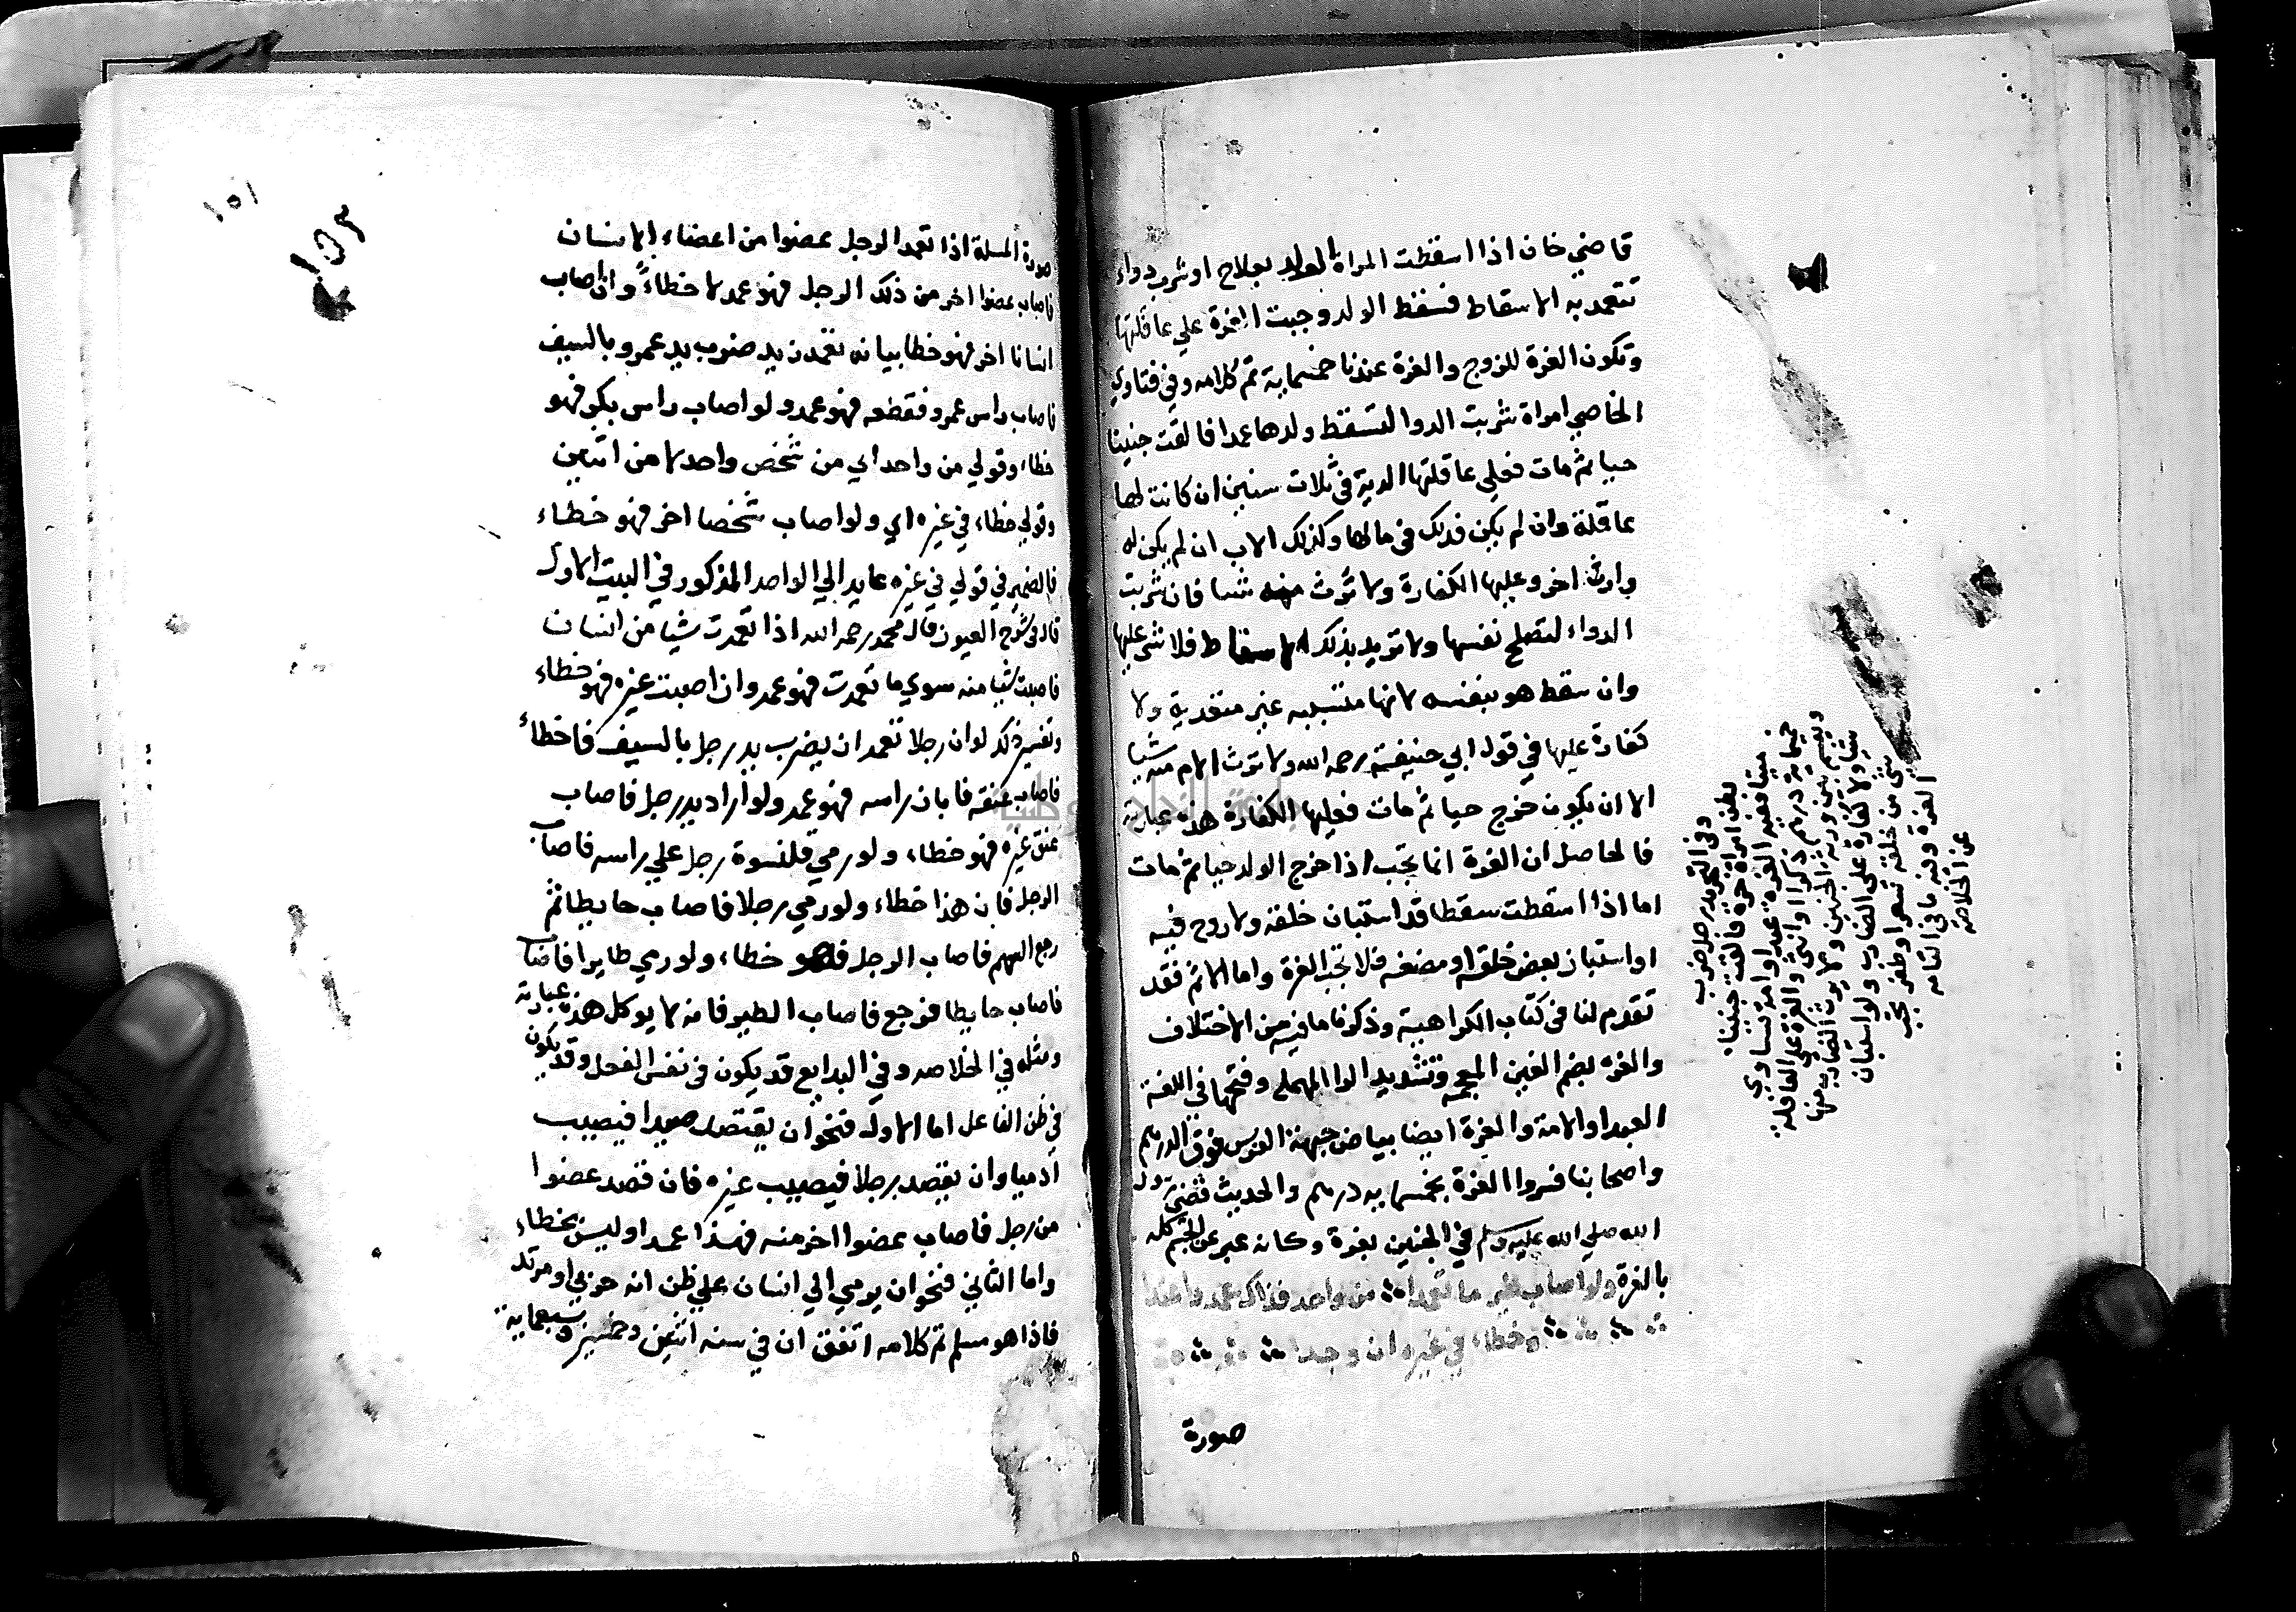 قاضي خان اذا اسقطت المراة الولد بعلاج او شرب دواء
تتعمد به الاسقاط فسقط الولد وجبت الغرة علي عاقلتها
وتكون الغرة للزوج والغرة عندنا خمسماية تم كلامه وفي فتاوي
الخاصي امراة شربت الدوا لتسقط ولدها عمدا فالقت جنينا
حيا ثم مات فعلي عاقلتها الدية في ثلاث سنين ان كانت لها
عاقلة وان لم يكن فذلك في مالها وكذلك الاب ان لم يكن له
وارث اخر وعليها الكفارة ولا ترث منه شيا فان شربت
الدواء لتصلح نفسها ولا تريد بذلك الاسقاط فلا شي عليها
وان سقط هو بنفسه لانها متسببه غير متعدية ولا
كفارة عليها في قول ابي حنيفة رحمه الله ولا ترث الام منه شيا
الا ان يكون خرج حيا ثم مات فعليها الكفارة هذه عبارته
فالحاصل ان الغرة انما تجب اذا خرج الولد حيا ثم مات
اما اذا اسقطت سقطا قد استبان خلقه ولا روح فيه
او استبان بعض خلقه او مضغه فلا تجب الغرة واما الاثم فقد
تقدم لنا في كتاب الكراهية وذكرنا ما فيه من الاختلاف
والغره بضم الغين المعجمه وتشديد الرا المهمله وفتحها في اللغة
العبد او الامة والغرة ايضا بياض جبهة الفرس فوق الدرهم
واصحابنا فسروا الغرة بخمسمايه درهم والحديث قضي رسول
الله صلي الله عليه وسلم في الجنين بغرة وكانه عبر عن الجسم كله
بالغرة ولو اصاب غير ما تعمدا من واحد فذاك عمد
وخطاء في غيره ان وجدا
صورة
وفي التجريد رجل ضرب
بطن امراة حرة فالقت جنينا
ميتا ففيه الغرة عبدا او امة تساوي
خمسماية درهم ذكرا او انثي والغرة علي العاقلة
وتقسم بين ورثة الجنين ولا يرث الضارب منها
شيا ولا كفارة علي الضارب ولو استبان
شي من خلقه شعر او ظفر تجب
الغرة وفيه ما في التامه
من الخلاصة
١٥١
١٥٣
صورة المسلة اذا تعمد الرجل عضوا من اعضاء الانسان
فاصاب عضوا اخر من ذلك الرجل فهو عمد لا خطاء وان اصاب
انسانا اخر فهو خطا بيانه تعمد زيد ضرب يد عمرو بالسيف
فاصاب راس عمرو فقطعه فهو عمد ولو اصاب راس بكر فهو
خطاء وقولي من واحد اي من شخص واحد لا من اثنين
وقولي خطاء في غيره اي ولو اصاب شخصا اخر فهو خطاء
فالضمير في قولي في غيره عايد الي الواحد المذكور في البيت الاول
قال في شرح العيون قال محمد رحمه الله اذا تعمدت شيا من انسان
فاصبت شيا منه سوي ما تعمدت فهو عمد وان اصبت غيره فهو خطاء
وتفسير ذلك لو ان رجلا تعمد ان يضرب يد رجل بالسيف فاخطاء
فاصاب عنقه فابان راسه فهو عمد ولو اراد يد رجل فاصاب
عنق غيره فهو خطاء ولو رمي قلنسوة رجل علي راسه فاصاب
الرجل فان هذا خطاء ولو رمي رجلا فاصاب حايطا ثم
رجع السهم فاصاب الرجل فهو خطاء ولو رمي طايرا فاصاب
فاصاب حايطا فرجع فاصاب الطير فانه لا يوكل هذه عبارته
ومثله في الخلاصه وفي البدايع قد يكون في نفس الفعل وقد يكون
في ظن الفاعل اما الاول فنحو ان يقصد صيدا فيصيب
آدميا وان يقصد رجلا فيصيب غيره فان قصد عضوا
من رجل فاصاب عضوا اخر منه فهذا عمد وليس بخطاء
واما الثاني فنحو ان يرمي الي انسان علي ظن انه حربي او مرتد
فاذا هو مسلم تم كلامه اتفق ان في سنه اثنين وخمسين وسبعماية